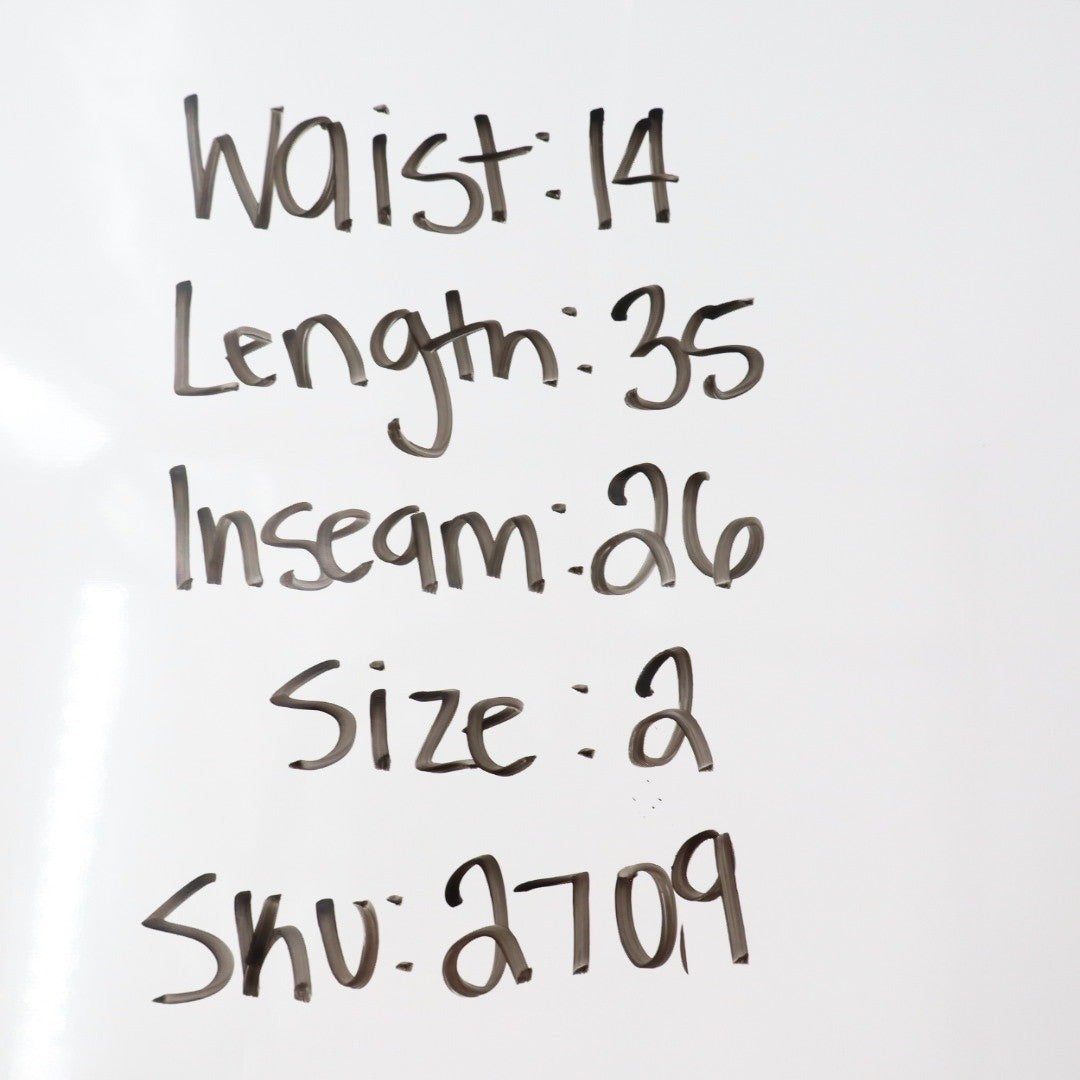 Waist: 14
Length: 35
Inseam: 26
Size: 2
SKU: 2709